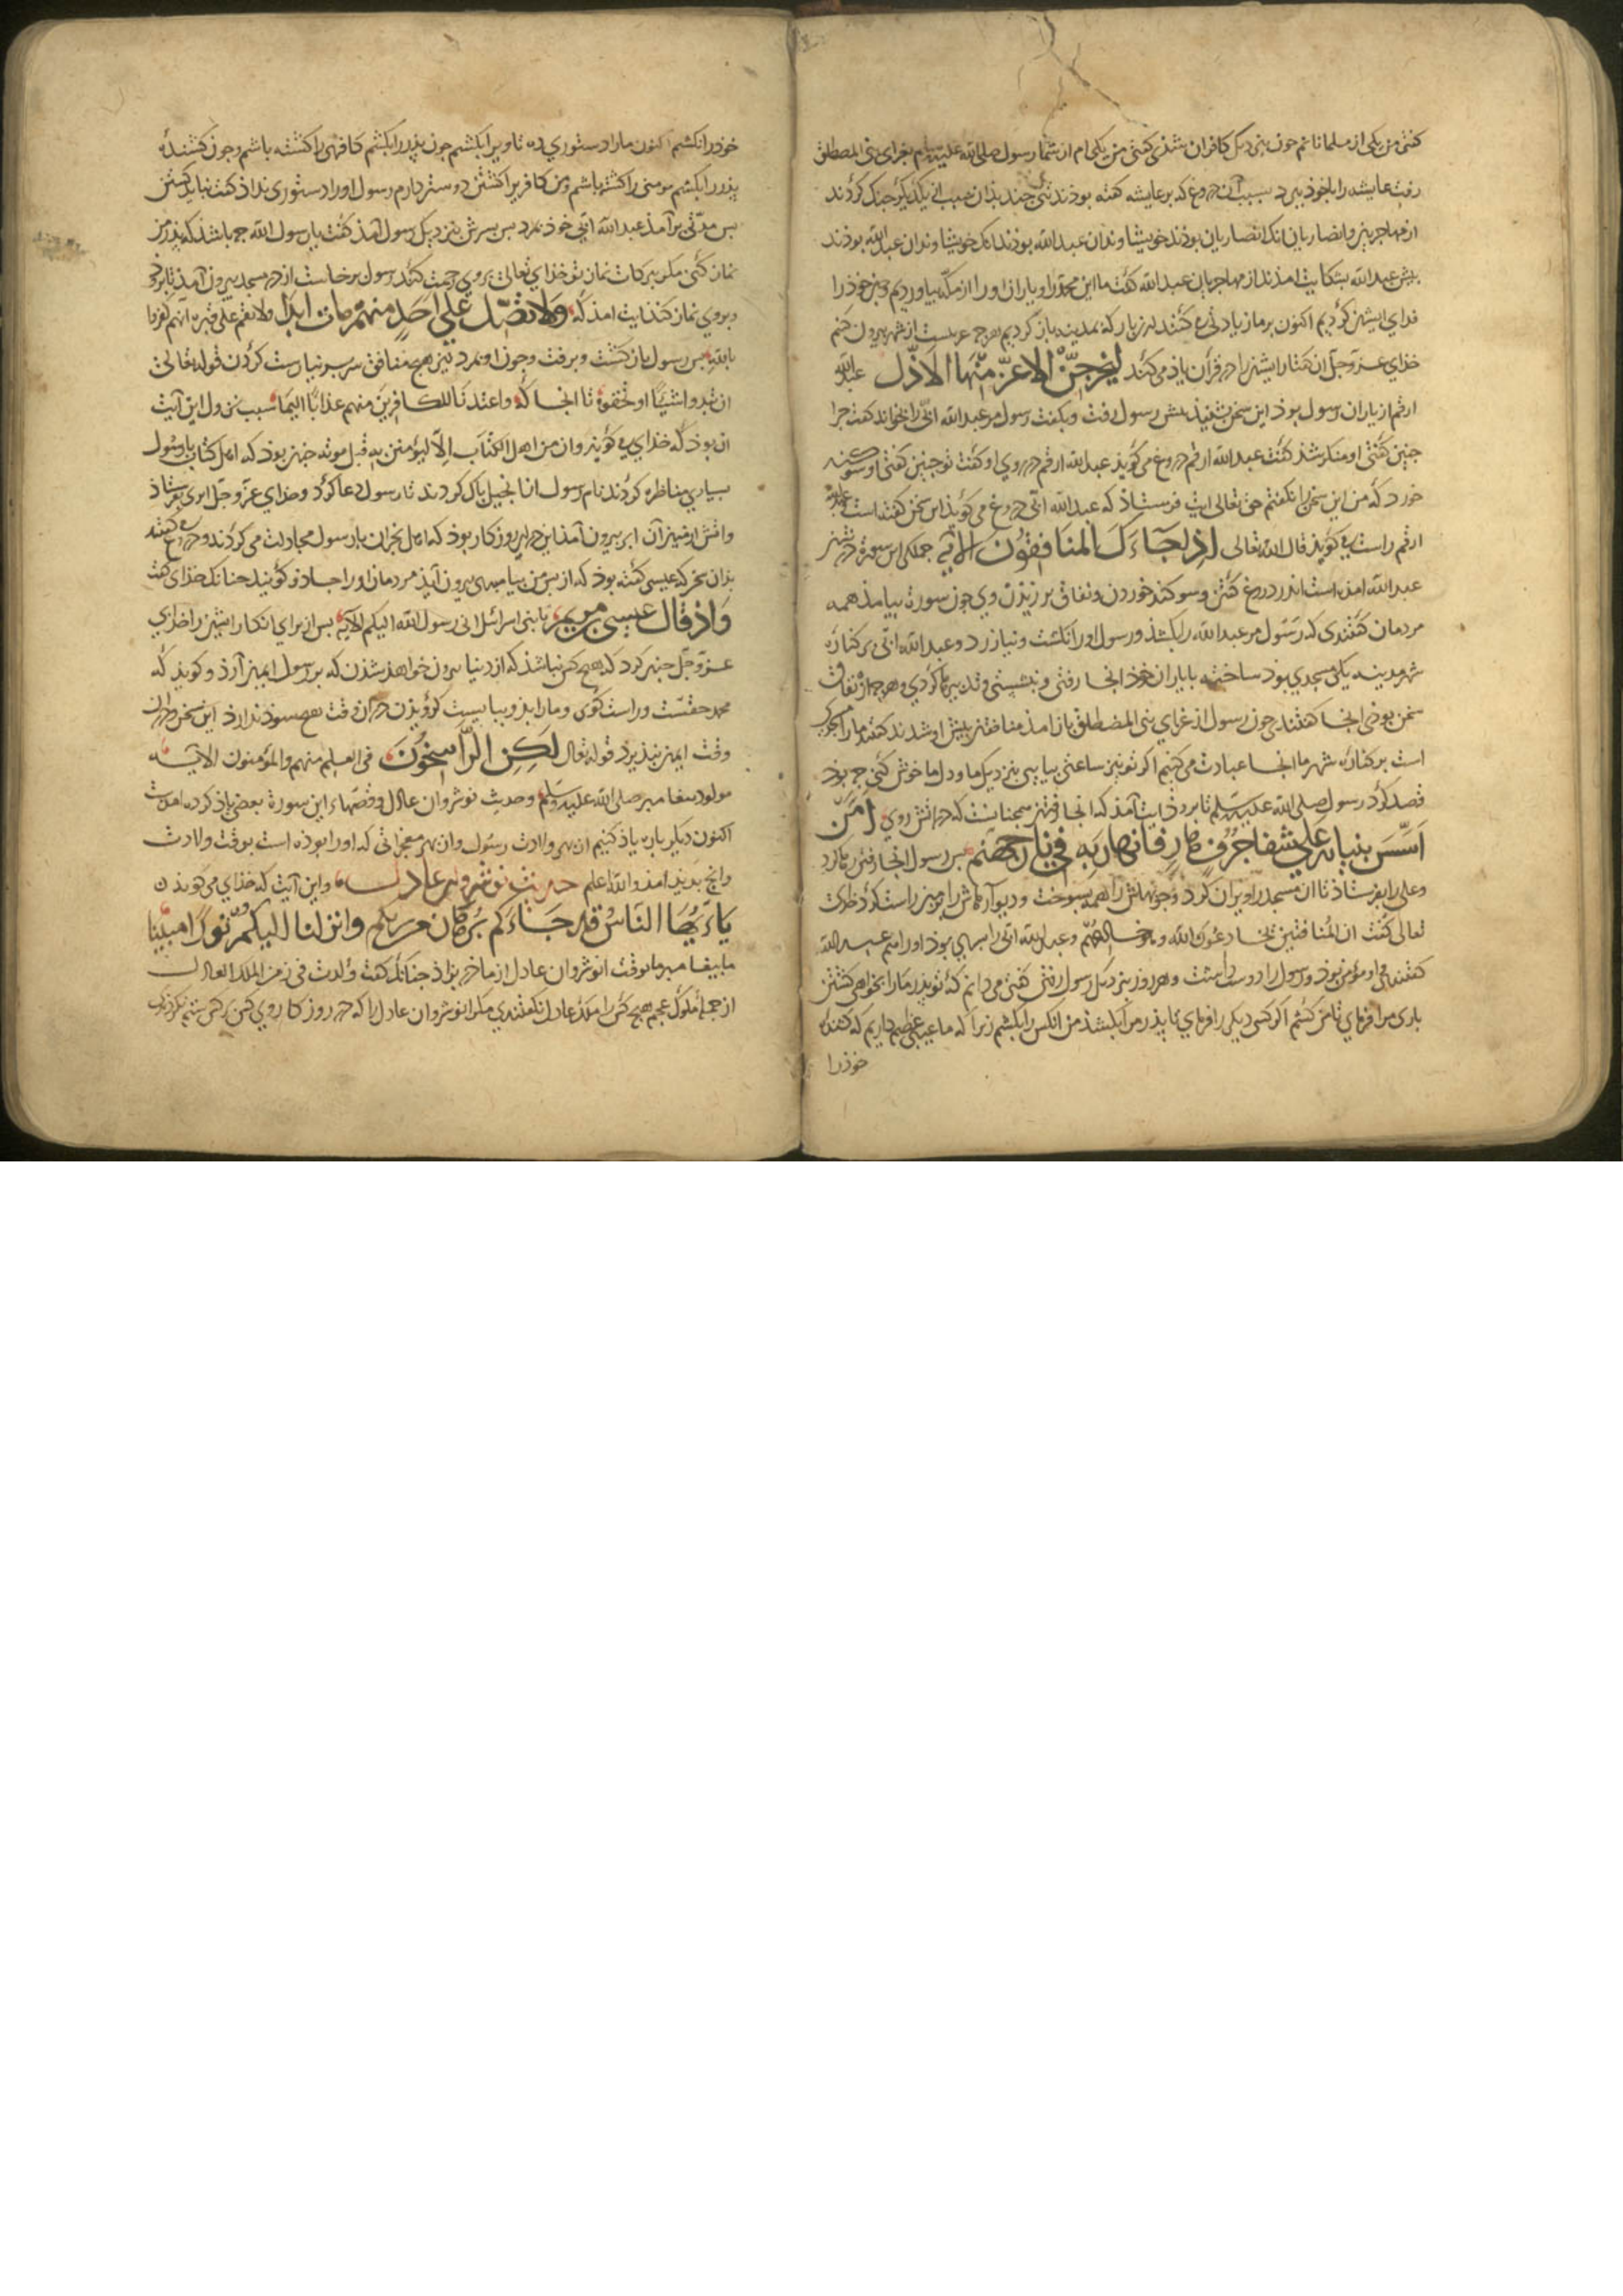 کفتی من یکی از مسلمانانم چون بنزدیک کافران شذی کفتی من یکی ام از شما رسول صلی الله علیه وسلم بغزای بنی المصطلق
رفت عایشه را با خوذ ببرد بسبب آن دروغ که بر عایشه کفته بوذند تنی چند بذان سبب با یکدیکر جنک کردند
از مهاجریان و انصاریان انک انصاریان بوذند خویشاوندان عبدالله بوذند انک خویشاوندان عبدالله بوذند
پیش عبدالله بشکایت امذند از مهاجریان عبدالله کفت ما این محمد را و یاران او را از مکه بیاوردیم و تن خوذ را
فدای ایشان کردیم اکنون بر ما زیادتی کنند این بار که بمدینه باز کردیم هرچ عربست از شهر بیرون کنم
خذای عز و جل آن کفتار ایشان را در قرآن یاذ می کند لیخرجن الاعز منها الاذل عبدالله
ارقم از یاران رسول بوذ این سخن بشنیذ پیش رسول رفت و بکفت رسول مر عبدالله ابی را بخواند کفت چرا
چنین کفتی او منکر شد کفت عبدالله ارقم دروغ می کویذ عبدالله ارقم در روی او کفت تو چنین کفتی او سوکند
خورد که من این سخن را نکفتم حق تعالی ایت فرستاذ که عبدالله ابی دروغ می کویذ این سخن کفته است عبدالله
ارقم راست می کویذ قال الله تعالی اذا جاءک المنافقون الآیة جملکی این سورة در شان
عبدالله امذه است اندر دروغ کفتن و سوکند خوردن و نفاق برزیذن وی چون سورة بیامذ همه
مردمان کفتندی که رسول مر عبدالله را بکشذ و رسول او را نکشت و نیازرد و عبدالله ابی بر کناره
شهر مدینه یکی مسجدی بوذ ساخته با یاران خوذ انجا رفتی و بنشستی و تدبیرها کردی و هرچه از نفاق
سخن بوذی انجا کفتند چون رسول از غزای بنی المصطلق باز امذ منافقان پیش او شدند کفتند ما را مسجدی
است بر کناره شهر ما انجا عبادت می کنیم اکر تو نیز ساعتی بیایی بنزدیک ما و دل ما خوش کنی چه بوذ
قصد کرد رسول صلی الله علیه وسلم تا بروذ ایت آمذ که انجا رفتن همچنانست که در اتش روی امن
اسس بنیانه علی شفا جرف هار فانهار به فی نار جهنم پس رسول انجا رفتن رها کرد
و علی را بفرستاذ تا ان مسجد را ویران کرد و چوبهاش را همه بسوخت و دیوارهاش را بزمین راست کرد
تعالی کفت ان المنافقین یخادعون الله وهو خادعهم و عبدالله ابی را پسری بوذ او را هم عبدالله
کفتندی او مؤمن بوذ و رسول را دوست داشت و هر روز بنزدیک رسول رفتی کفتی می دانم که تو پذر ما را بخواهی کشتن
باری مرا فرمای تا من کشم اکر کسی دیکر را فرمای تا پذر من را بکشذ من انکس را بکشم زیرا که ما عیبی عظیم داریم که کشنده
خوذ را
خوذ را نکشم اکنون ما را دستوری ده تا ویرا بکشم چون پذر را بکشم کافری را کشته باشم و چون کشنده
پذر را بکشم مومنی را کشته باشم و من کافر را کشتن دوستر دارم رسول او را دستوری نداذ کفت نباید کشتن
پس مدتی برآمذ عبدالله ابی خوذ بمرد پس پسرش بنزدیک رسول آمذ کفت یا رسول الله چه باشذ که بر پذر من
نماز کنی مکر ببرکات نماز تو خذای تعالی بر وی رحمت کند رسول برخاست از در مسجد بیرون آمذ تا بروذ
و بر وی نماز کند ایت امذ که ولا تصل علی احد منهم مات ابدا ولا تقم علی قبره انهم کفروا
بالله پس رسول باز کشت و برفت و چون او بمرد نیز هیچ منافق سر بر نیارست کردن قوله تعالی
ان تبدوا شیئا او تخفوه تا انجا که واعتدنا للکافرین منهم عذابا الیما سبب نزول این آیت
ان بوذ که خذای می کویذ وان من اهل الکتاب الا لیؤمنن به قبل موته چنان بوذ که اهل کتاب با رسول
بسیاری مناظره کردند نام رسول از انجیل پاک کردند تا رسول دعا کرد و خذای عز و جل ابری بفرستاذ
و اتش از میان آن ابر بیرون آمذ این در ان روزکار بوذ که اهل نجران با رسول مجادلت می کردند و دروغ کفتند
بذان سخن که عیسی کفته بوذ که از پس من پیامبری بیرون آیذ مردمان او را جادو کویند چنانک خذای کفت
واذ قال عیسی بن مریم یا بنی اسرائل انی رسول الله الیکم الآیة پس از برای انکار ایشان را خذای
عز و جل خبر کرد که هیچ کس نباشذ که از دنیا بیرون خواهد شذن که برسول ایمان آرذ و کویذ که
محمد حقست و راست کوی و ما را بذو ببایست کرویذن در آن وقت هیچ سوذ ندارذ این سخن در ان
وقت ایمان نپذیرذ قوله تعالی لکن الراسخون فی العلم منهم والمؤمنون الآیة
مولود پیغامبر صلی الله علیه وسلم و حدیث نوشروان عادل و قصتهاء این سورة بعضی یاذ کرده امدست
اکنون دیکر باره یاذ کنیم از بهر ولادت رسول و ان بهر معجزاتی که او را بوذه است بوقت ولادت
وانچ پدید امذ والله اعلم حدیث نوشروان عادل و این آیت که خذای می کویذ
یا ایها الناس قد جاءکم برهان من ربکم وانزلنا الیکم نورا مبینا
ما پیغامبر ما بوقت انوشروان عادل از ماذر بزاذ چنانک کفت ولدت فی زمن الملک العادل
از جمله ملوک عجم هیچ کس را ملک عادل نکفتندی مکر انوشروان عادل را که در روزکار وی کس بر کس ستم نکردی